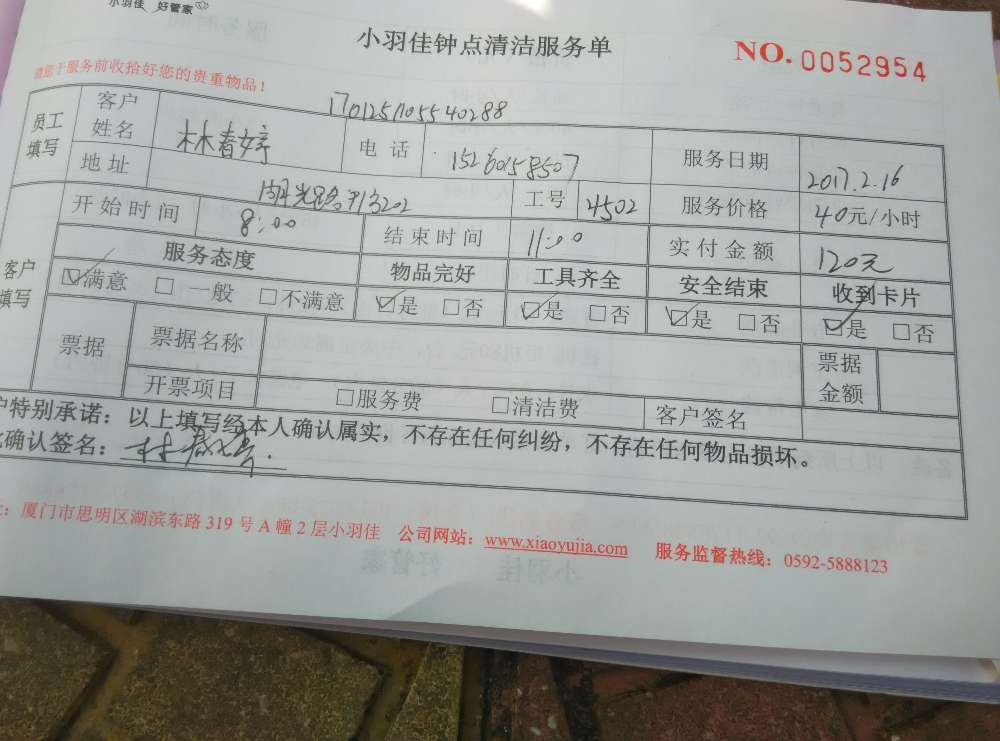 小羽佳 好管家
小羽佳钟点清洁服务单
NO. 0052954
于服务前收拾好您的贵重物品！
170125110554028​8
员工填写 客户姓名 林春婷 电话 15260158507 服务日期 2017.2.16
地址 3202 工号 4502 服务价格 40元/小时
开始时间 8:00 结束时间 11:00 实付金额 120元
客户填写 服务态度 物品完好 工具齐全 安全结束 收到卡片
☑满意 □一般 □不满意 ☑是 □否 ☑是 □否 ☑是 □否 ☑是 □否
票据 票据名称 票据金额
开票项目 □服务费 □清洁费 客户签名
户特别承诺：以上填写经本人确认属实，不存在任何纠纷，不存在任何物品损坏。
确认签名：林春婷
：厦门市思明区湖滨东路 319 号 A 幢 2 层小羽佳 公司网站：www.xiaoyujia.com 服务监督热线：0592-5888123